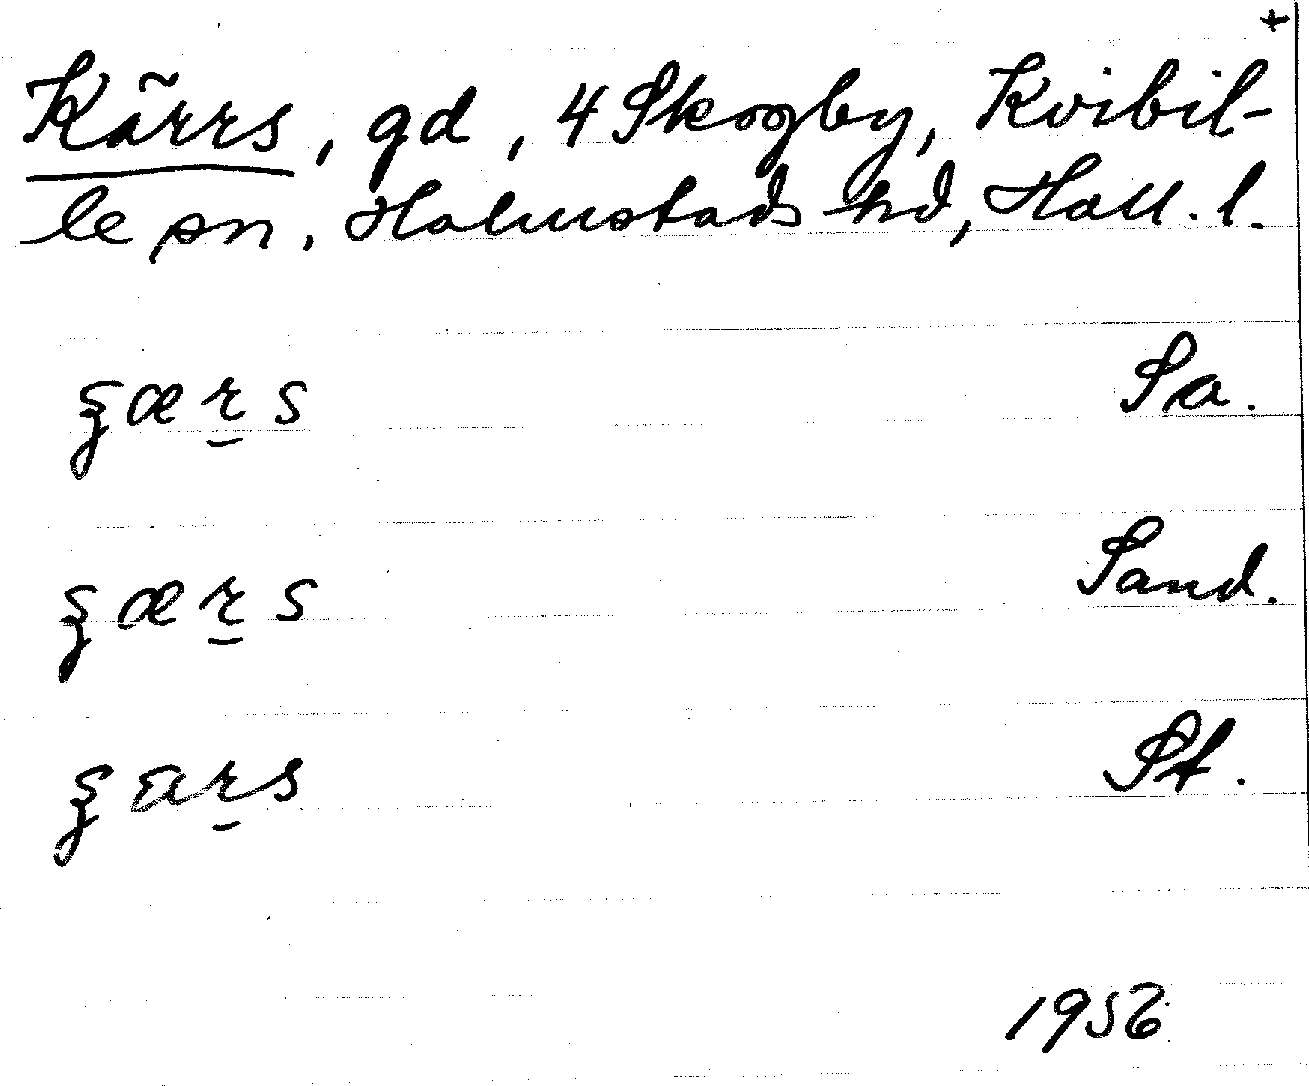 +
Kärrs, gd, 4 Skogby, Kvibil-
le sn, Halmstads hd, Hall. l.
ʂærs Sa.
ʂærs Sand.
ʂars St.
1956